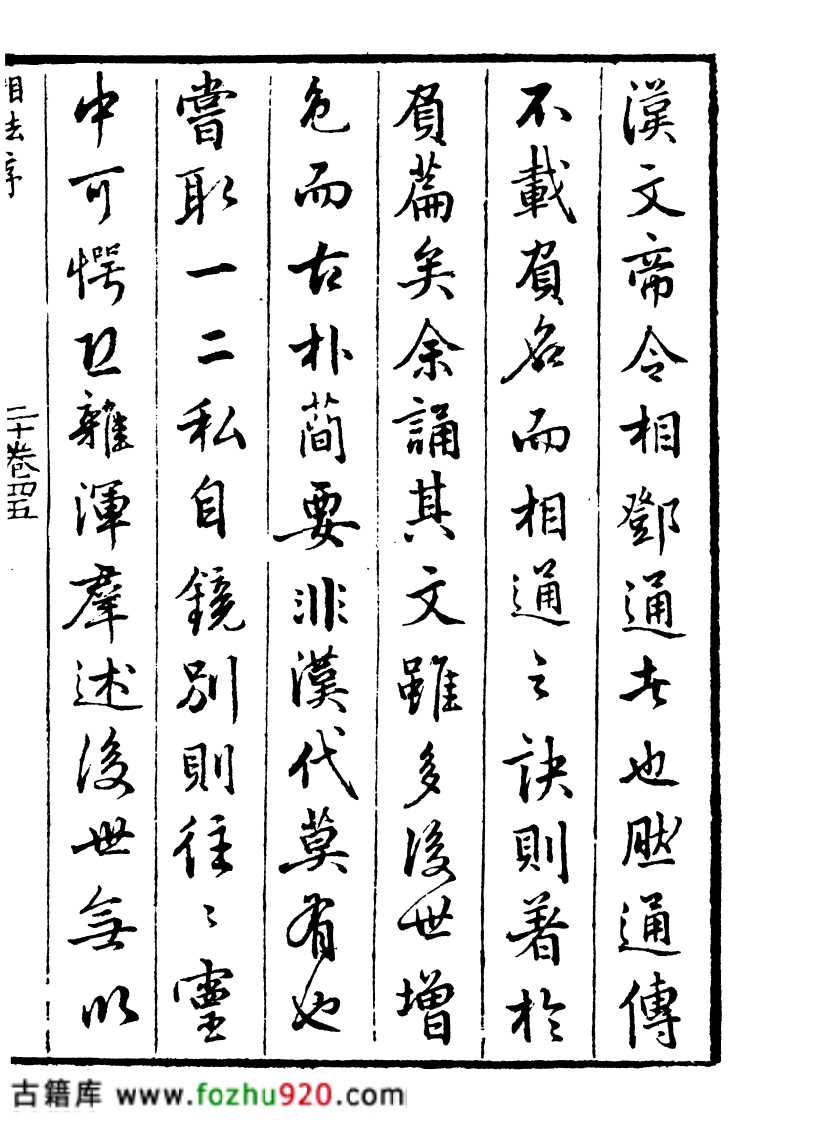 漢文帝令相鄧通者也然通傳
不載負名而相通之訣則著於
負篇矣余誦其文雖多後世增
色而古朴簡要非漢代莫有也
嘗取一二私自鏡別則往〻靈
中可愕雜渾羣述後世無以
相法序
二十卷四五
古籍库 www.fozhu920.com